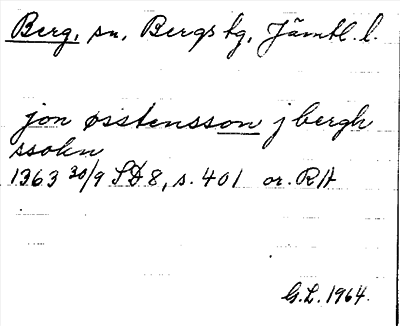 Berg, sn, Bergs tg, Jämtl. l.
jon øsstensson j bergh
ssokn
1363 30/9 SD 8, s. 401 or. RA
G.L. 1964.